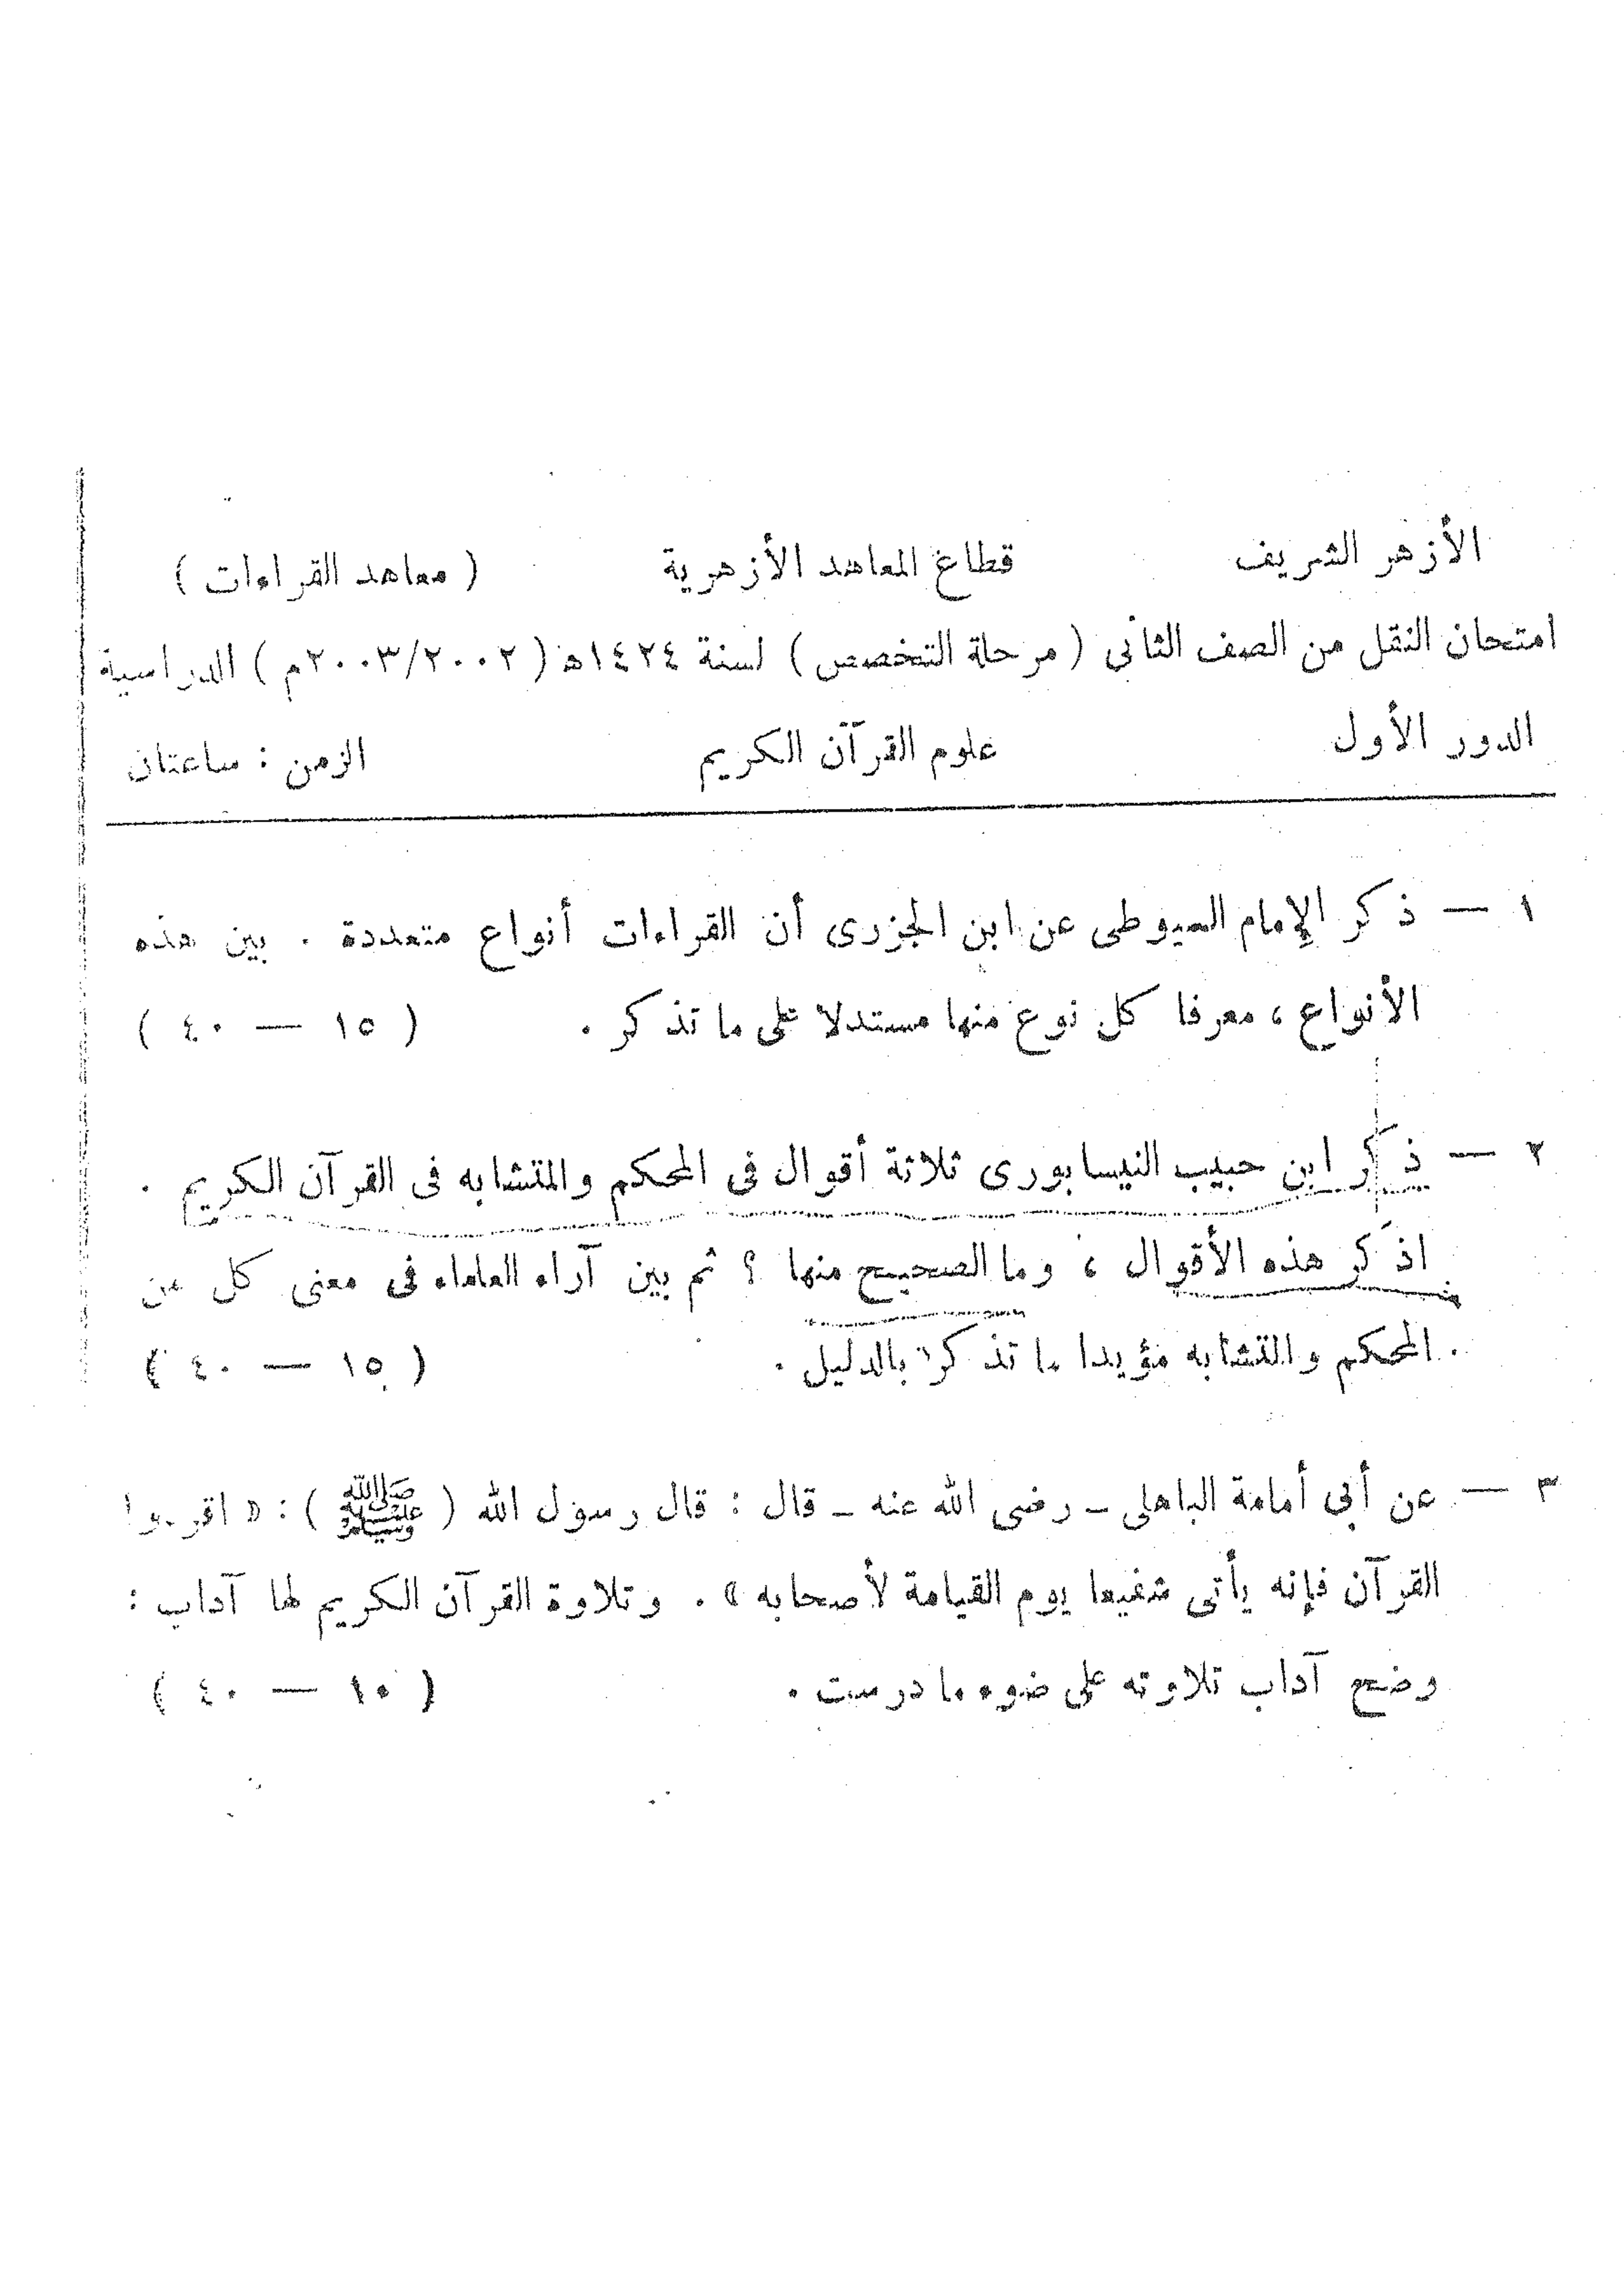 الأزهر الشريف قطاع المعاهد الأزهرية ( معاهد القراءات )
امتحان النقل من الصف الثانى ( مرحلة التخصص ) لسنة ١٤٢٤هـ ( ٢٠٠٣/٢٠٠٢م ) الدراسية
الدور الأول علوم القرآن الكريم الزمن : ساعتان
١ — ذكر الإمام السيوطى عن ابن الجزرى أن القراءات أنواع متعددة . بين هذه
الأنواع ، معرفا كل نوع منها مستدلا على ما تذكر . ( ١٥ — ٤٠ )
٢ — ذكر ابن حبيب النيسابورى ثلاثة أقوال فى المحكم والمتشابه فى القرآن الكريم .
اذكر هذه الأقوال ، وما الصحيح منها ؟ ثم بين آراء العلماء فى معنى كل من
المحكم والمتشابه مؤيدا ما تذكر بالدليل . ( ١٥ — ٤٠ )
٣ — عن أبى أمامة الباهلى ـ رضى الله عنه ـ قال : قال رسول الله ( ﷺ ) : « اقرءوا
القرآن فإنه يأتى شفيعا يوم القيامة لأصحابه » . وتلاوة القرآن الكريم لها آداب :
وضح آداب تلاوته على ضوء ما درست . ( ١٠ — ٤٠ )